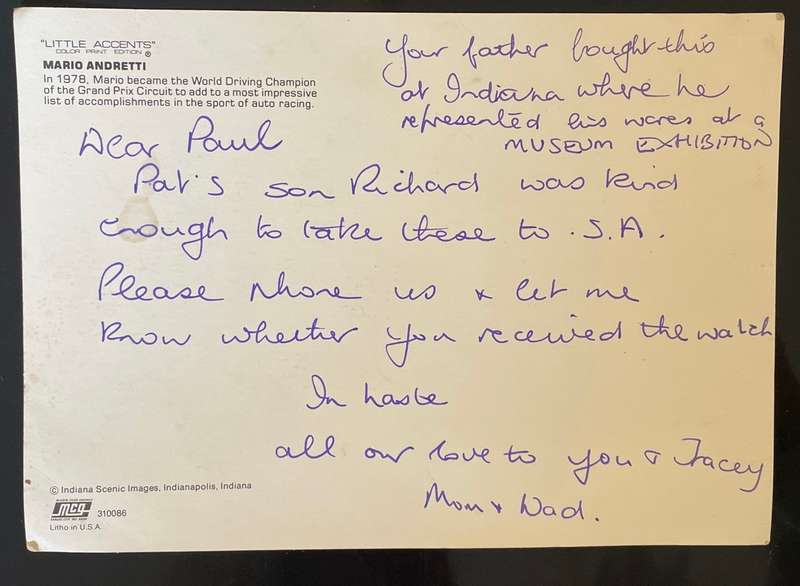 "LITTLE ACCENTS"
COLOR PRINT EDITION ®
MARIO ANDRETTI
In 1978, Mario became the World Driving Champion
of the Grand Prix Circuit to add to a most impressive
list of accomplishments in the sport of auto racing.
Your father bought this
at Indiana where he
represented his wares at a
MUSEUM EXHIBITION
Dear Paul
Pat's son Richard was kind
enough to take these to S.A.
Please phone us & let me
know whether you received the watch
In haste
all our love to you & Tracey
Mom & Dad.
© Indiana Scenic Images, Indianapolis, Indiana
mcg 310086
Litho in U.S.A.